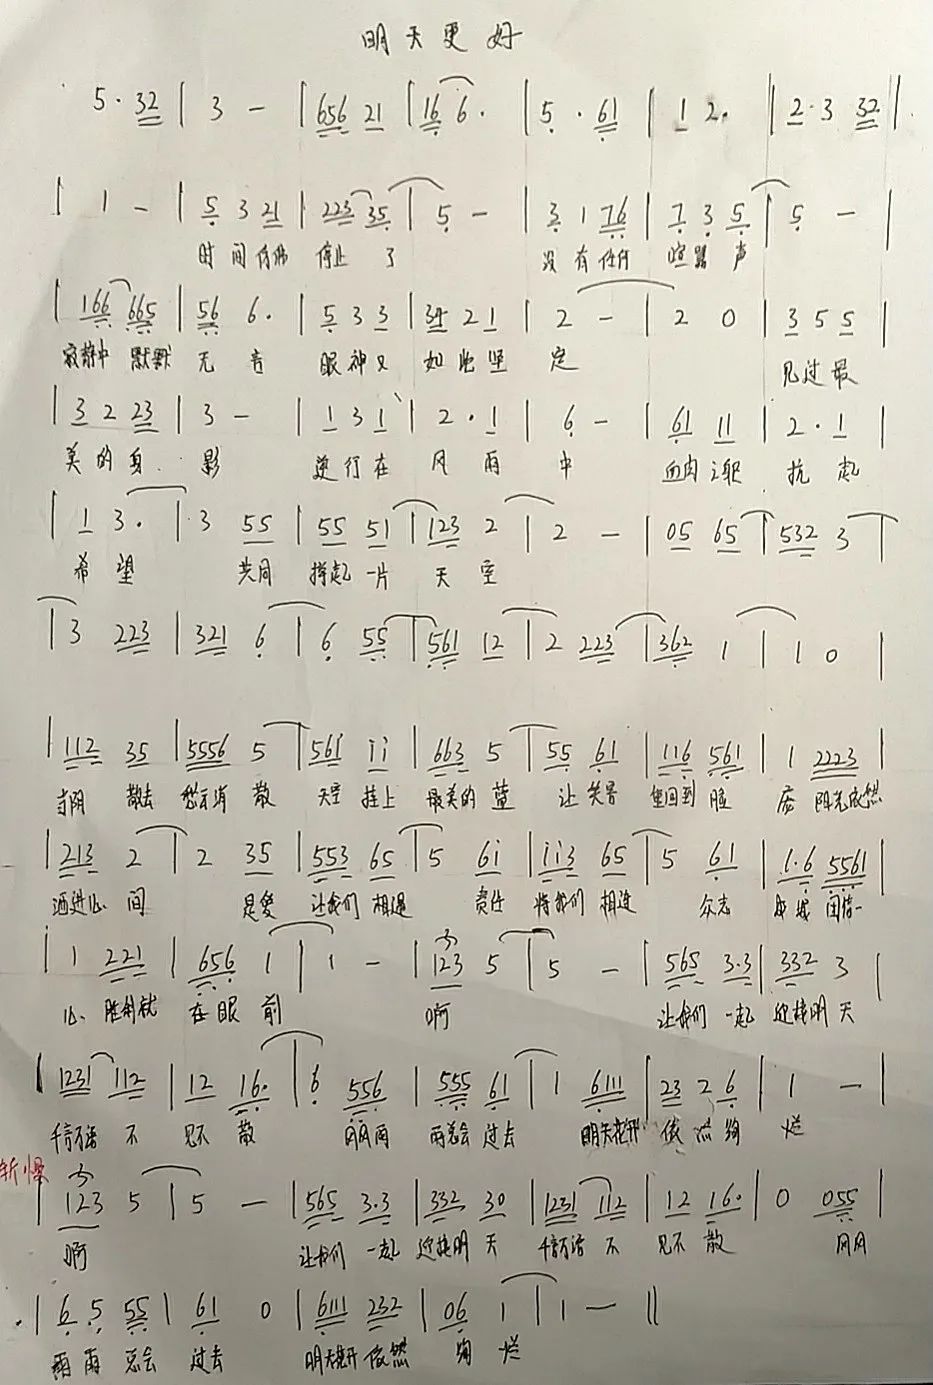 明天更好
5·32 | 3 — | 656 21 | 16 6· | 5·61 | 1 2· ‖ 2·3 32 |
| 1 — | 5 3 21 | 223 35 | 5 — | 3 1 76 | 7 3 5 | 5 — |
时间仿佛 停止 了 没有任何 喧嚣 声
| 166 665 | 56 6· | 5 3 3 | 34 2 1 | 2 — | 2 0 | 3 5 5 |
寂静中 默默 无言 眼神又 如此坚 定 见过最
| 3 2 23 | 3 — | 1 3 1 | 2·1 | 6 — | 61 11 | 2·1 |
美的身 影 逆行在 风雨 中 血肉之躯 抗起
| 1 3· | 3 55 | 55 51 | 123 2 | 2 — | 05 65 | 532 3 |
希望 共同 撑起一片 天空
| 3 223 | 321 6 | 6 55 | 561 12 | 2 223 | 362 1 | 1 0 |
| 112 35 | 5556 5 | 561 11 | 663 5 | 55 61 | 116 561 | 1 2223 |
当阴 散去 愁云消 散 天空 挂上 最美的 蓝 让 笑容 重回到 脸 庞 阳光依然
| 213 2 | 2 35 | 553 65 | 5 61 | 113 65 | 5 61 | 1·6 5561 |
洒进心 间 是爱 让我们 相遇 责任 将我们 相连 众志 成城 团结一
| 1 221 | 656 1 | 1 — | 123 5 | 5 — | 565 3·3 | 332 3 |
心 胜利就 在眼 前 啊 让我们 一起 迎接明 天
| 1231 112 | 12 16· | 6 556 | 555 61 | 1 6111 | 23 2 6 | 1 — |
千言万语 不 见不 散 风风雨 雨总会 过去 明天花开 依然绚 烂
| 123 5 | 5 — | 565 3·3 | 332 30 | 1231 112 | 12 16· | 0 055 |
啊 让我们 一起 迎接明 天 千言万语 不 见不 散 风风
| 6 5 55 | 61 0 | 6111 232 | 06 1 | 1 — ‖
雨 雨 总会 过去 明天花开 依然 绚 烂